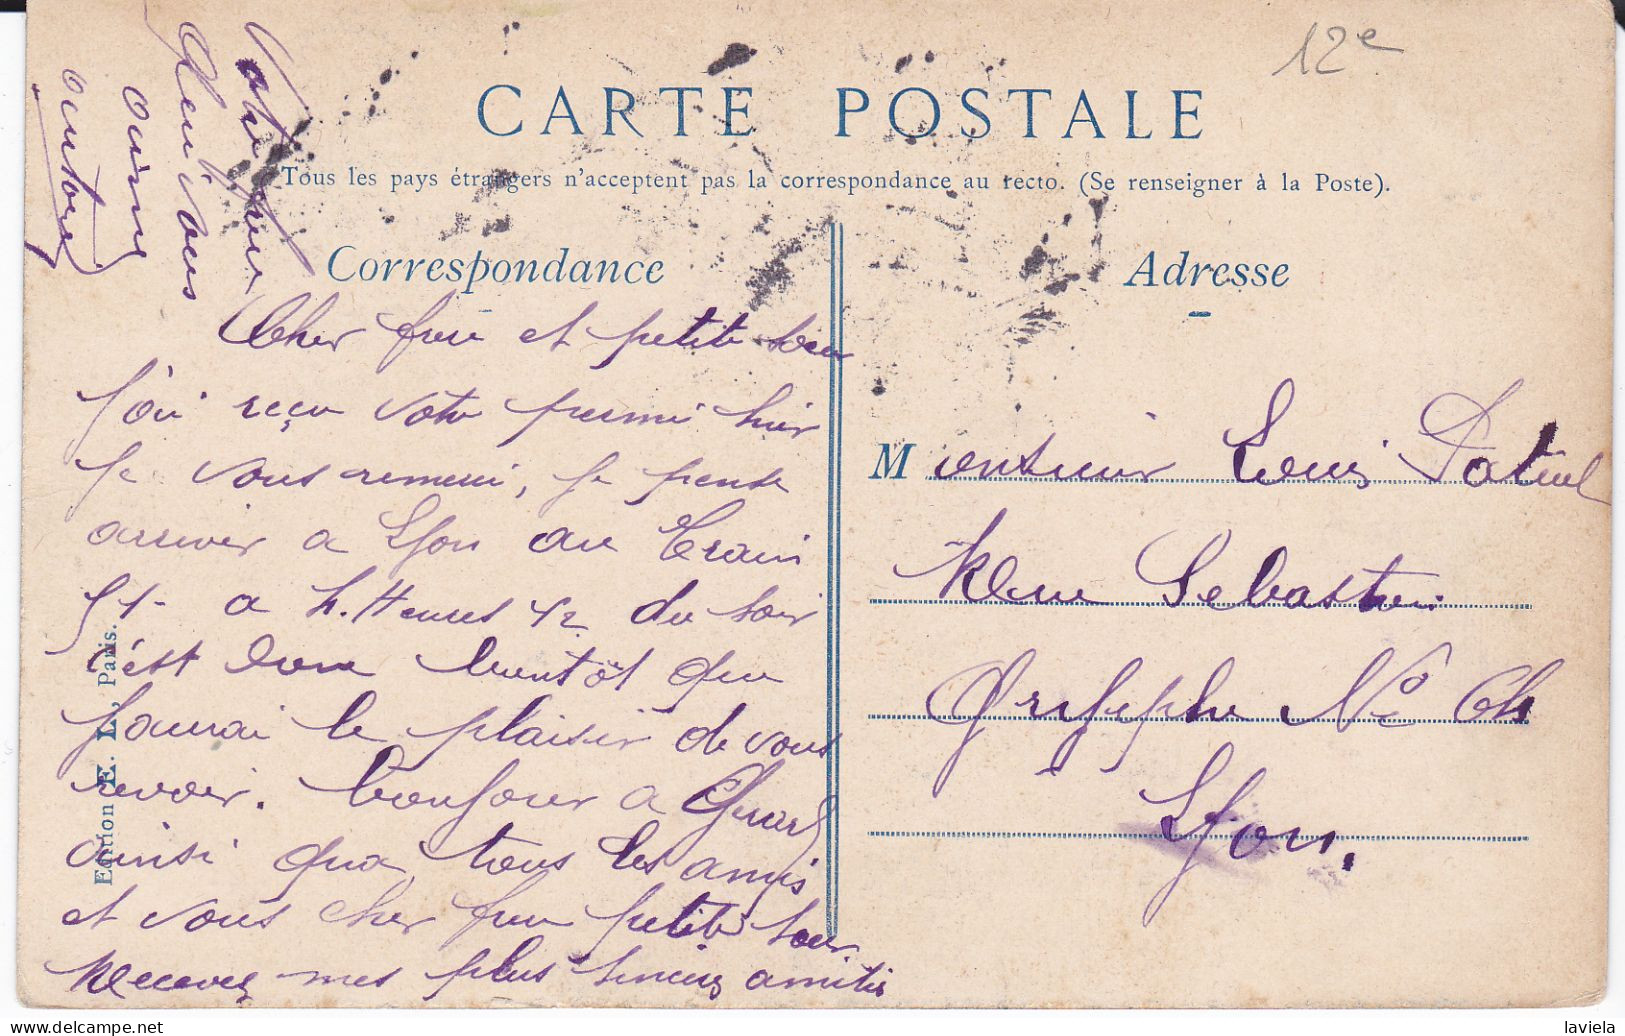 12e
CARTE POSTALE
Tous les pays étrangers n'acceptent pas la correspondance au recto. (Se renseigner à la Poste).
Correspondance
Adresse
Cher frere et petite soeur
J'ai reçu votre permi hier
je vous remerci, je pense
arriver a Lyon au train
a h. Heures 1/2 du soir
c'est donc bientôt que
j'aurai le plaisir de vous
revoir. bonjour a
ainsi qua tous les amis
et vous cher frere petite soeur
Recevez mes plus sincers amitiés
Votre frere
qui vous
aime
Monsieur Louis
Rue Sebastien
Gryphe No
Lyon.
Edition E. L., Paris.
laviela